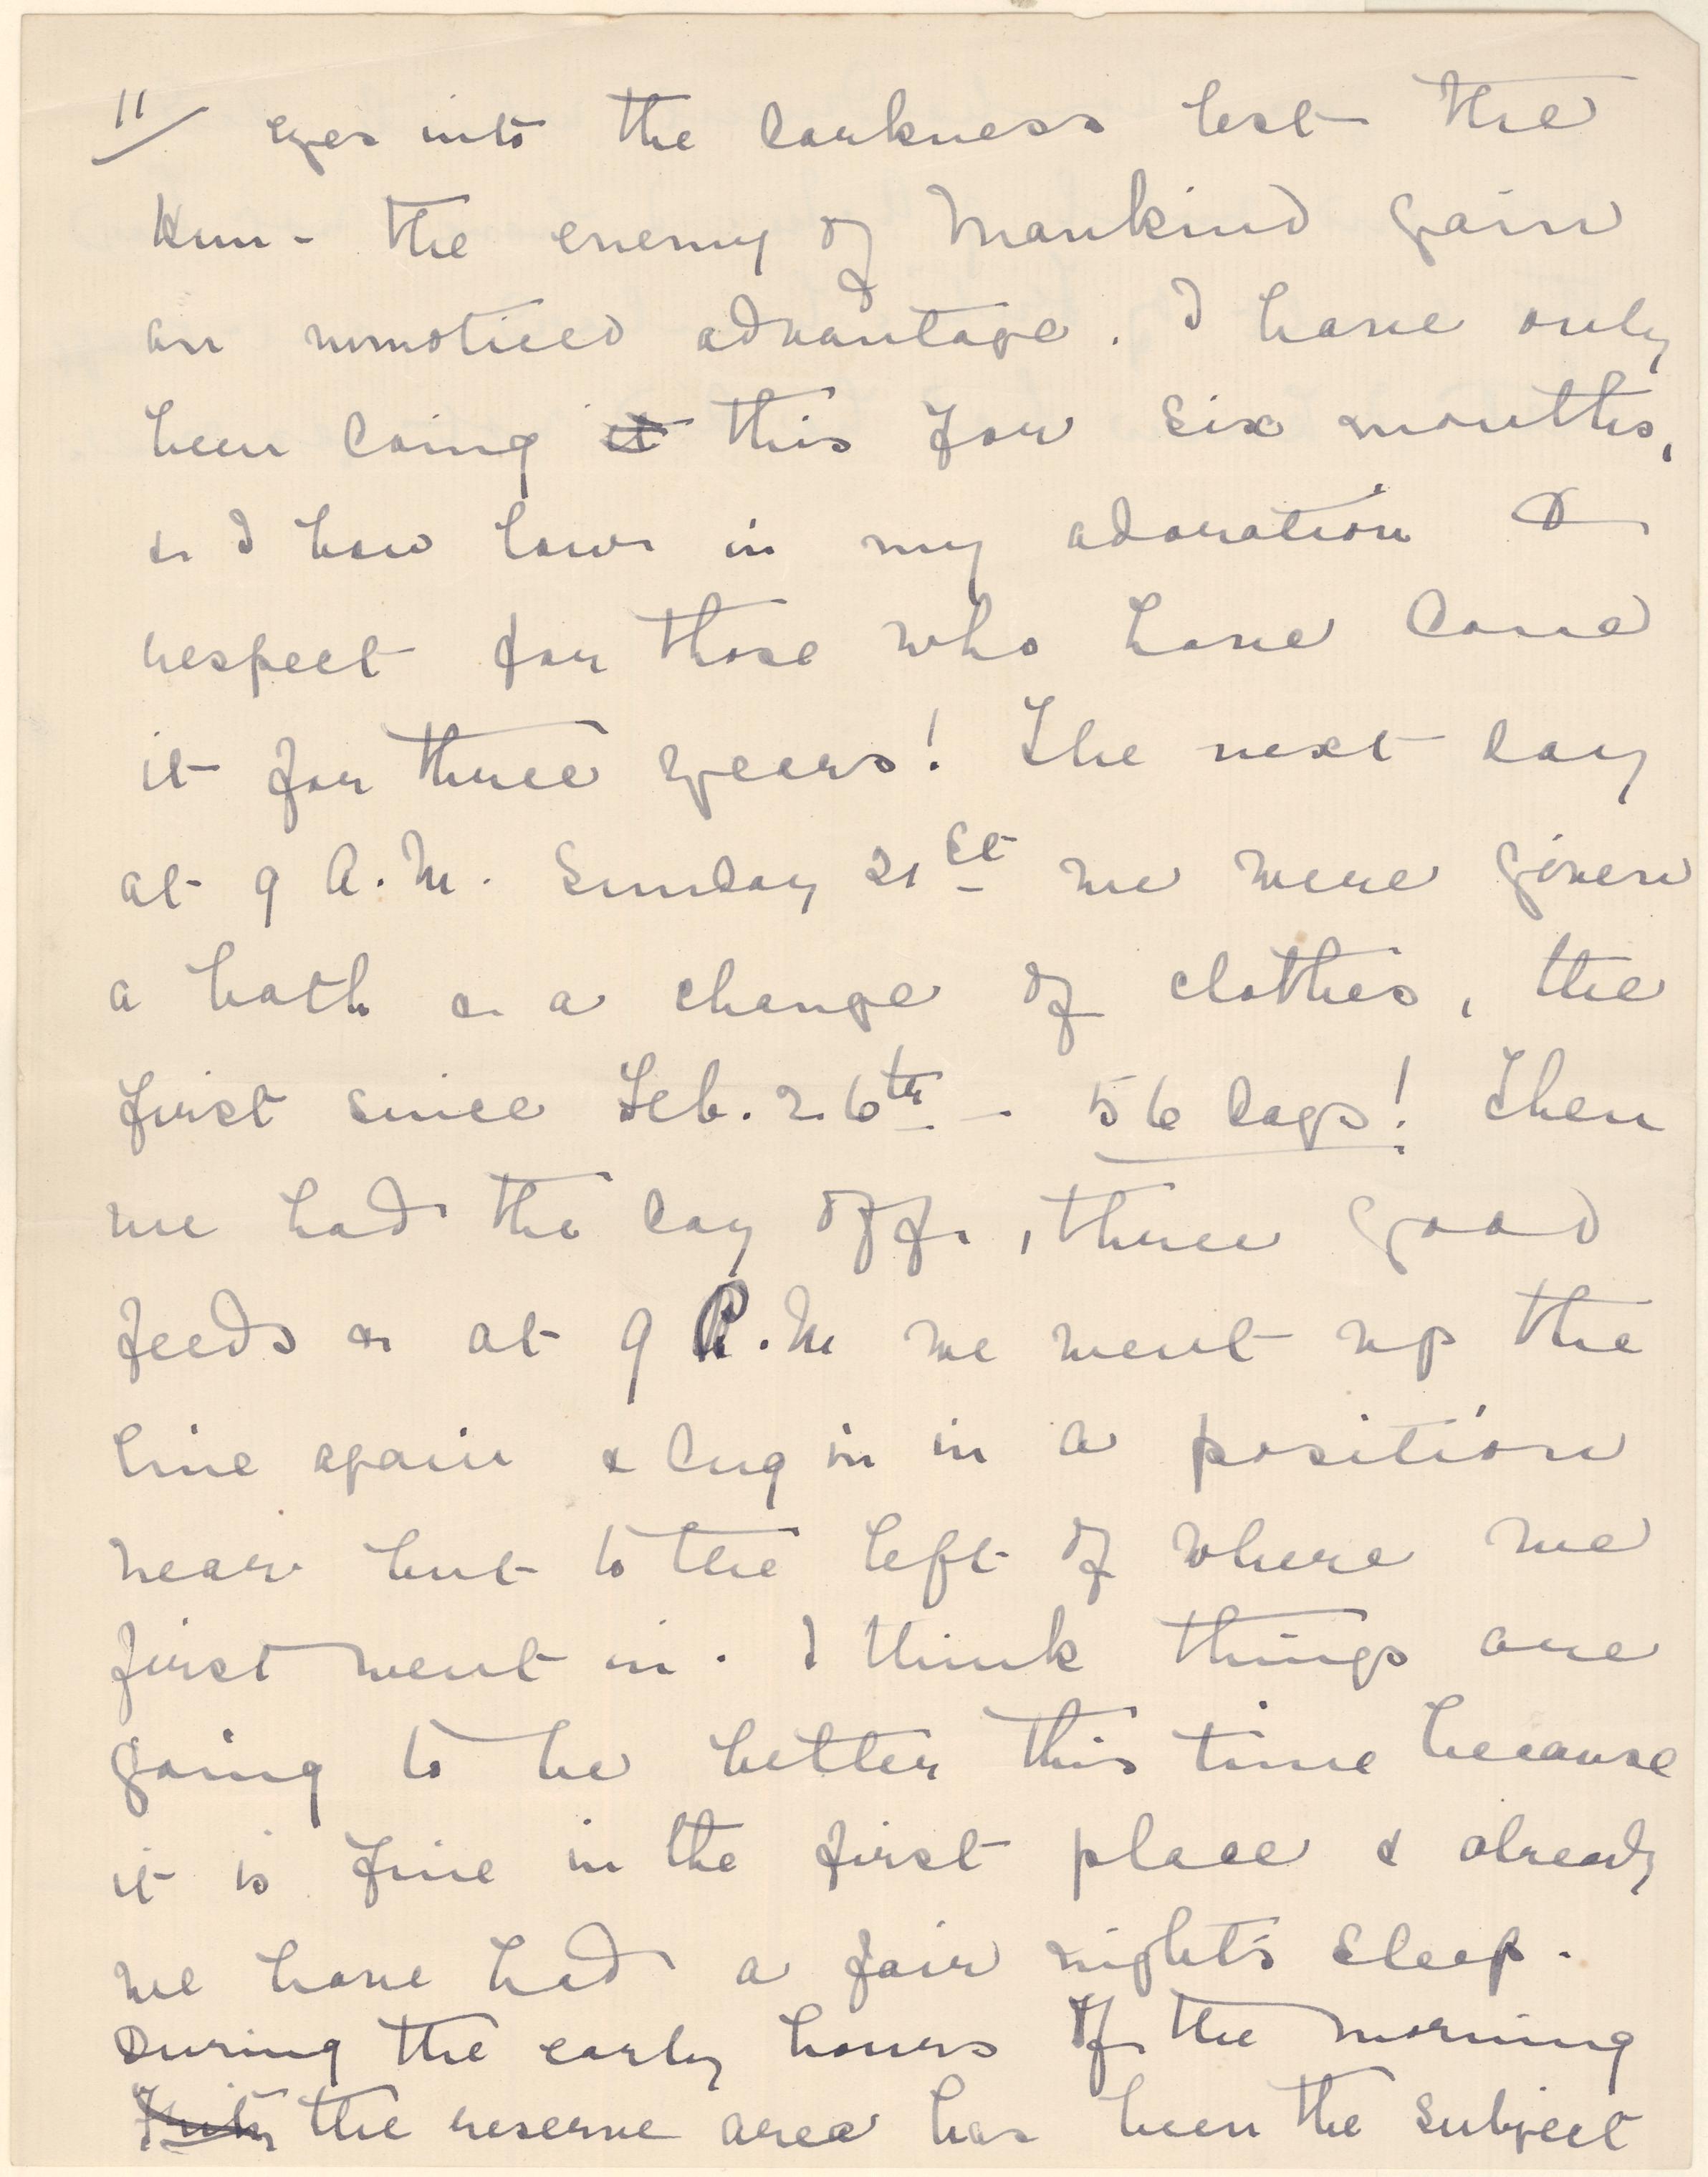 11/ eyes into the darkness lest the
Hun - the enemy of Mankind gain
an unnoticed advantage. I have only
been doing it this for six months,
& I bow low in my adoration &
respect for those who have done
it for three years! The next day
at 9 A.M. Sunday 21st we were given
a bath & a change of clothes, the
first since Feb. 26th - 56 days! Then
we had the day off, three good
feeds & at 9 P.M we went up the
line again & dug in in a position
near but to the left of where we
first went in. I think things are
going to be better this time because
it is fine in the first place & already
we have had a fair night's sleep.
During the early hours of the morning
the reserve area has been the subject